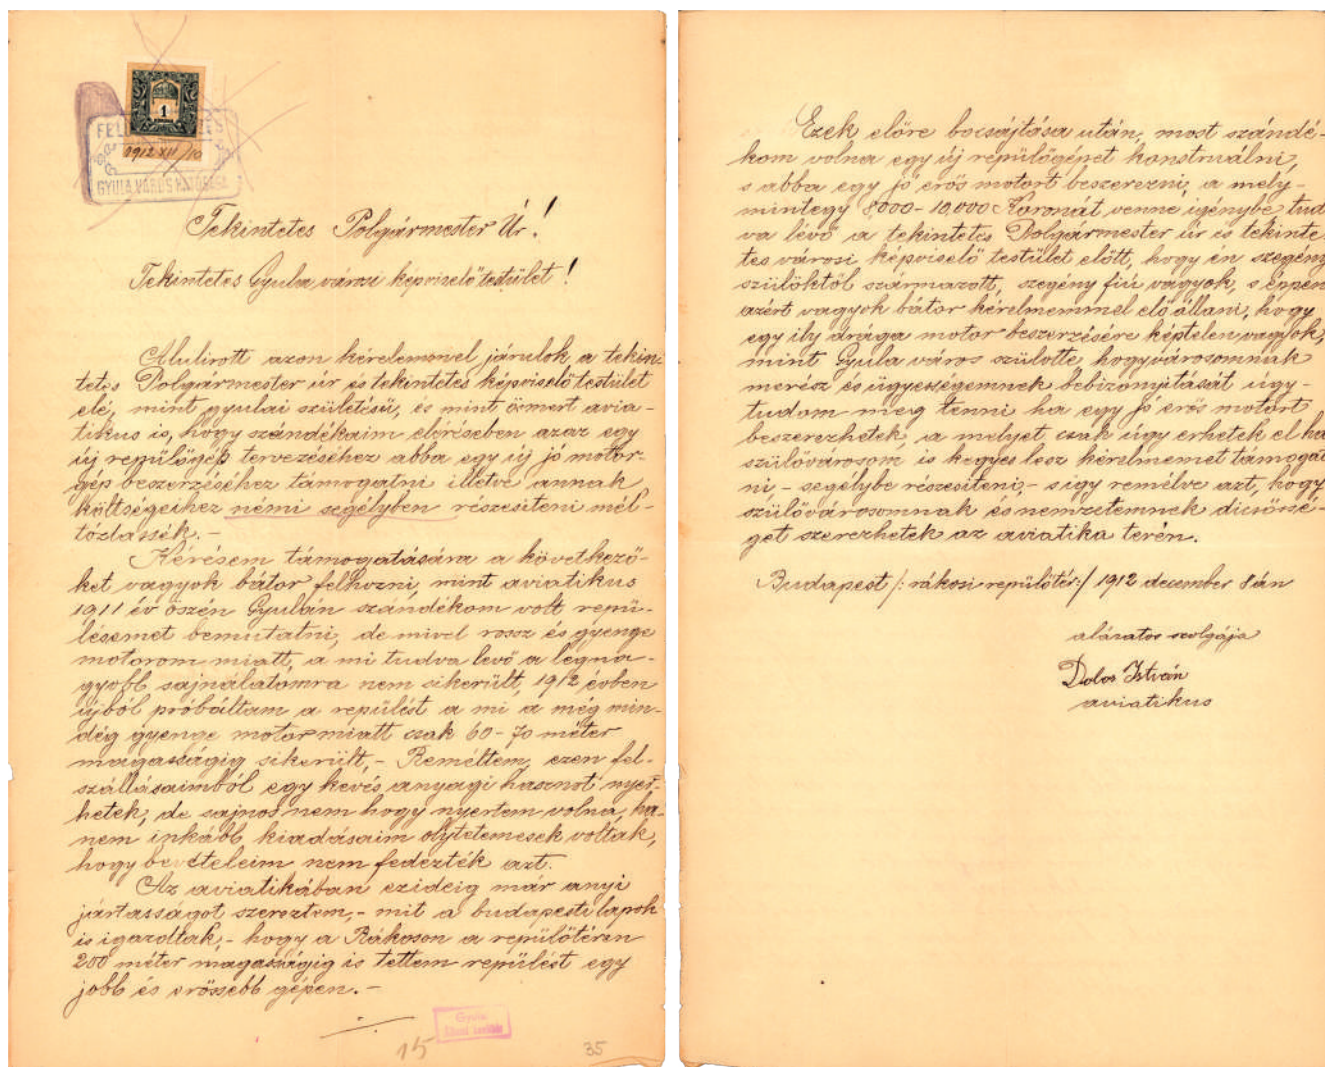 1
1912 XII/10
GYULA VÁROS HATÓSÁGA
Tekintetes Polgármester Úr!
Tekintetes Gyula városi képviselő testület!
Alulirott azon kérelemmel járulok a tekin
tetes Polgármester úr és tekintetes képviselő testület
elé, mint gyulai születésü, és mint ösmert avia-
tikus is, hogy szándékaim elérésében azaz egy
új repülőgép tervezéséhez abba egy új jó motor-
gép beszerzéséhez támogatni illetve annak
költségeihez némi segélyben részesiteni mél-
tóztassék.-
Kérésem támogatására a következő-
ket vagyok bátor felhozni, mint aviatikus
1911 év őszén Gyulán szándékom volt repü-
lésemet bemutatni, de mivel rossz és gyenge
motorom miatt, a mi tudva levő a legna-
gyobb sajnálatomra nem sikerült, 1912 évben
újból próbáltam a repülést a mi a még min-
dég gyenge motor miatt csak 60-70 méter
magasságig sikerült,- Reméltem, ezen fel-
szállásaimból egy kevés anyagi hasznot nyer-
hetek, de sajnos nem hogy nyertem volna, ha-
nem inkább kiadásaim oly tetemesek voltak,
hogy bevételeim nem fedezték azt.
Az aviatikában ezideig már anyi
jártasságot szereztem,- mit a budapesti lapok
is igazoltak,- hogy a Rákoson a repülőtéren
200 méter magasságig is tettem repülést egy
jobb és erőssebb gépen.-
Gyula
15
35
Ezek előre bocsájtása után, most szándé-
kom volna egy új repülőgépet konstruálni,
s abba egy jó erős motort beszerezni, a mely
mintegy 8000-10,000 Koronát venne igénybe, tud
va lévő a tekintetes Polgármester úr és tekinte
tes városi képviselő testület előtt, hogy én szegény
szülőktől származott, szegény fiú vagyok, s éppen
azért vagyok bátor kérelmemmel elő állani, hogy
egy ily drága motor beszerzésére képtelen vagyok,
mint Gyula város szülötte, hogy városomnak
merész és ügyességemnek bebizonyitását úgy-
tudom meg tenni ha egy jó erős motort
beszerezhetek, a melyet csak úgy érhetek el ha
szülővárosom is kegyes lesz kérelmemet támogat
ni,- segélybe részesiteni,- s igy remélve azt, hogy
szülővárosomnak és nemzetemnek dicsősé-
get szerezhetek az aviatika terén.
Budapest /: rákosi repülőtér:/ 1912 december 8án
alázatos szolgája
Dolos István
aviatikus